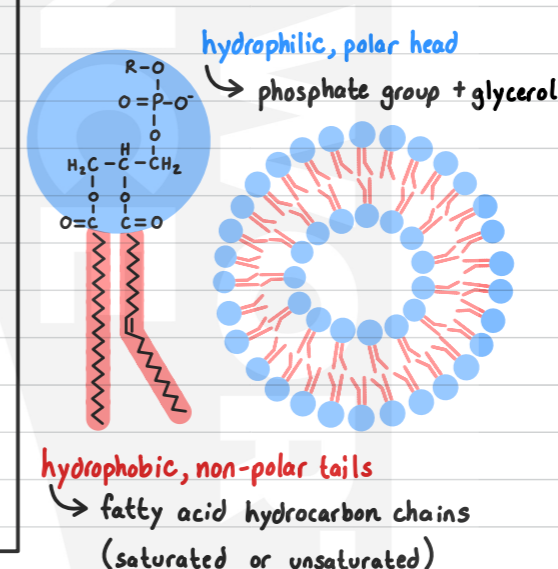 hydrophilic, polar head
phosphate group + glycerol
R-O
O=P-O⁻
O
H
H₂C-C-CH₂
O O
O=C C=O
hydrophobic, non-polar tails
fatty acid hydrocarbon chains
(saturated or unsaturated)